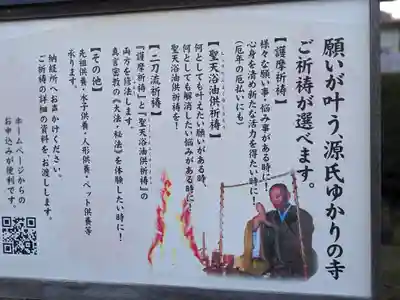 願いが叶う、源氏ゆかりの寺
ご祈祷が選べます。
【護摩祈祷】
様々な願い事・悩み事がある時に!
心身を清め新たな活力を得たい時に!
(厄年の厄払いにも)
【聖天浴油供祈祷】
何としても叶えたい願いがある時、
何としても解消したい悩みがある時に!
聖天浴油供祈祷を!
【二刀流祈祷】
『護摩祈祷』と『聖天浴油供祈祷』の
両方を修法します。
真言密教の《大法・秘法》を体験したい時に!
【その他】
先祖供養・水子供養・人形供養・ペット供養等
承ります。
納経所へお声かけください。
ご祈祷の詳細の資料を、お渡しします。
ホームページからの
お申込みが便利です。